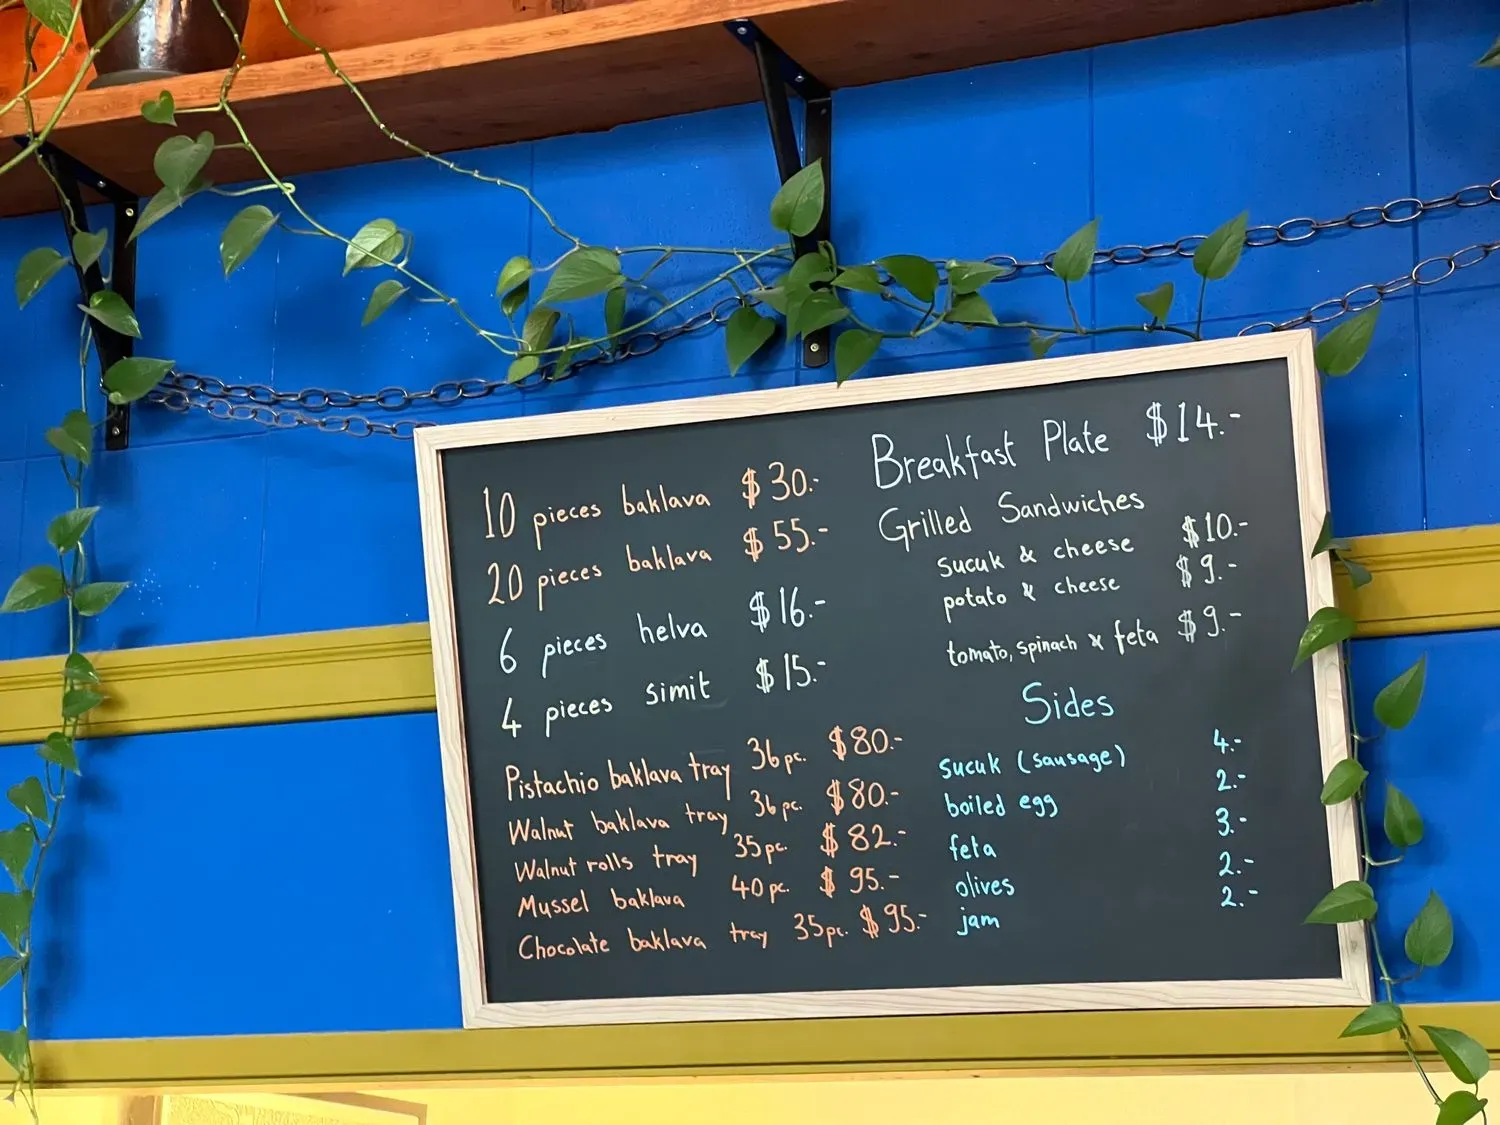 10 pieces baklava $30.-
20 pieces baklava $55.-
6 pieces helva $16.-
4 pieces simit $15.-
Pistachio baklava tray 36 pc. $80.-
Walnut baklava tray 36 pc. $80.-
Walnut rolls tray 35 pc. $82.-
Mussel baklava 40 pc. $95.-
Chocolate baklava tray 35 pc. $95.-
Breakfast Plate $14.-
Grilled Sandwiches
sucuk & cheese $10.-
potato & cheese $9.-
tomato, spinach & feta $9.-
Sides
sucuk (sausage) 4.-
boiled egg 2.-
feta 3.-
olives 2.-
jam 2.-